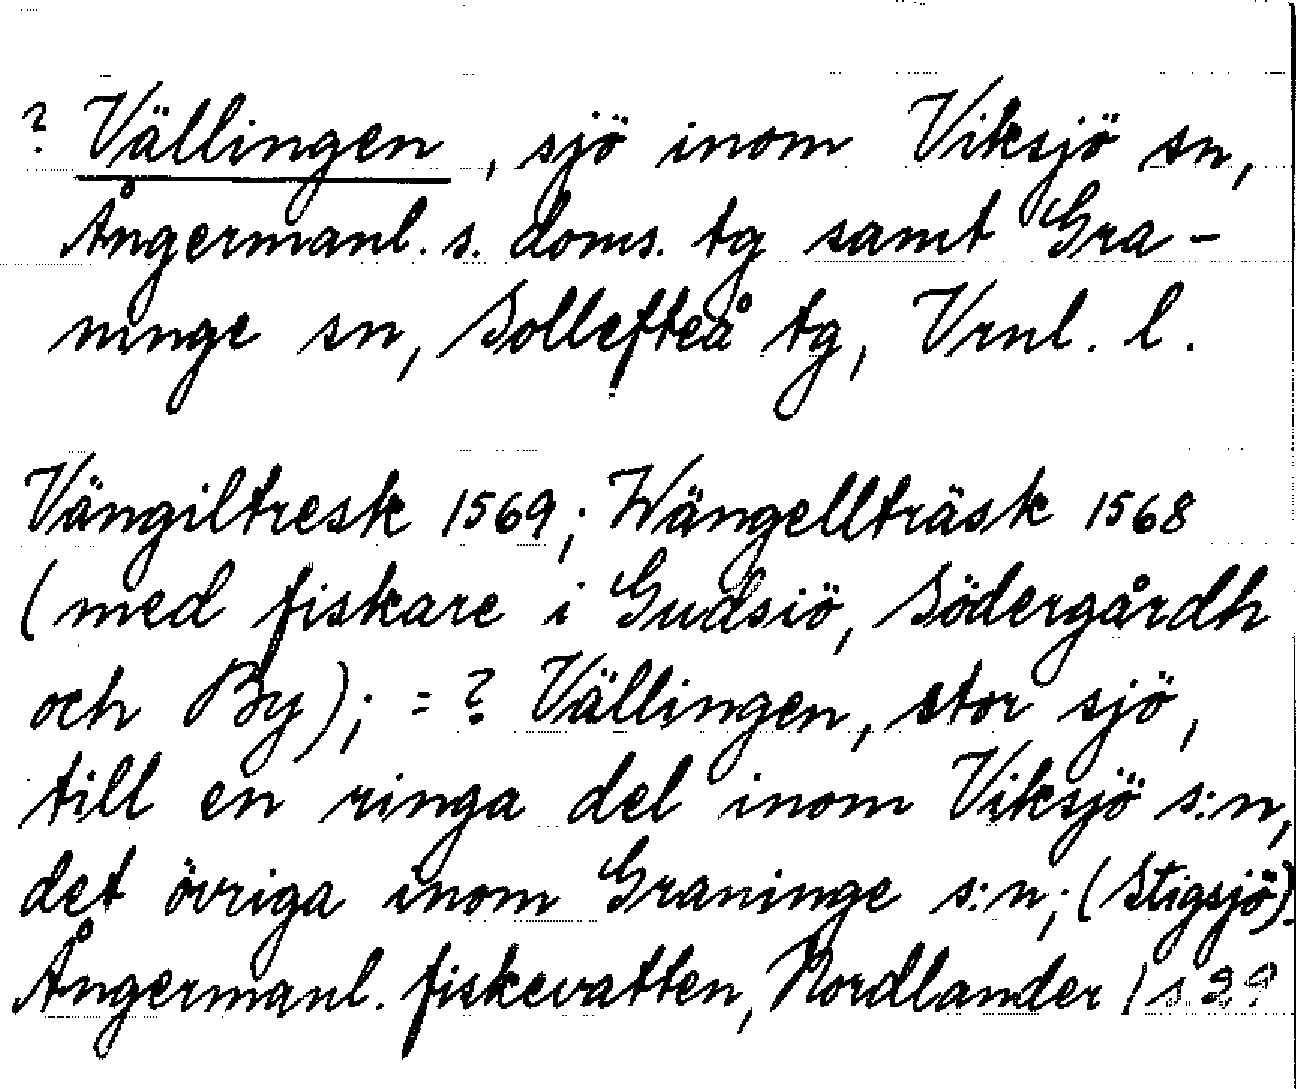 ? Vällingen, sjö inom Viksjö sn,
Ångermanl. s. doms. tg samt Gra-
ninge sn, Sollefteå tg, Vrnl. l.
Vängiltresk 1569; Wängellträsk 1568
(med fiskare i Gudsiö, Södergårdh
och By); = ? Vällingen, stor sjö,
till en ringa del inom Viksjö s:n,
det övriga inom Graninge s:n; (Stigsjö).
Ångermanl. fiskevatten, Nordlander 1 s. 29